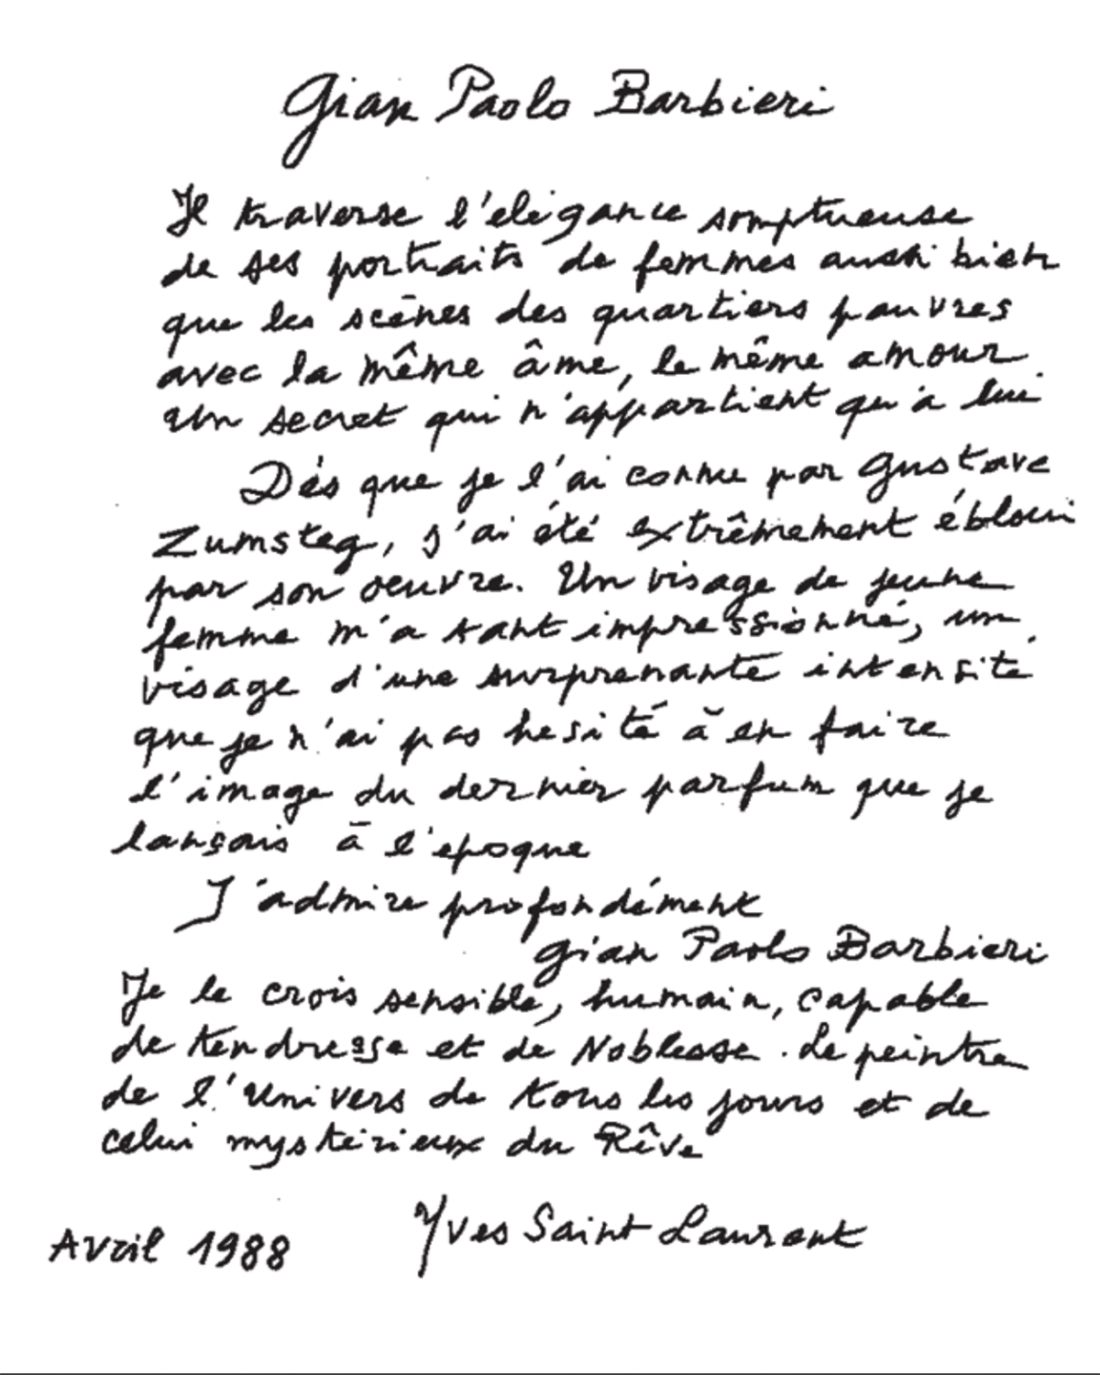 Gian Paolo Barbieri
Il traverse l'elégance somptueuse
de ses portraits de femmes aussi bien
que les scènes des quartiers pauvres
avec la même âme, le même amour
Un secret qui n'appartient qu'à lui
Dés que je l'ai connu par Gustave
Zumsteg, j'ai été extrêmement ébloui
par son oeuvre. Un visage de jeune
femme m'a tant impressionné, un
visage d'une surprenante intensité
que je n'ai pas hesité à en faire
l'image du dernier parfum que je
lançais à l'epoque
J'admire profondément
Gian Paolo Barbieri
Je le crois sensible, humain, capable
de tendresse et de Noblesse. Le peintre
de l'Univers de tous les jours et de
celui mystérieux du Rêve
Avril 1988 Yves Saint Laurent